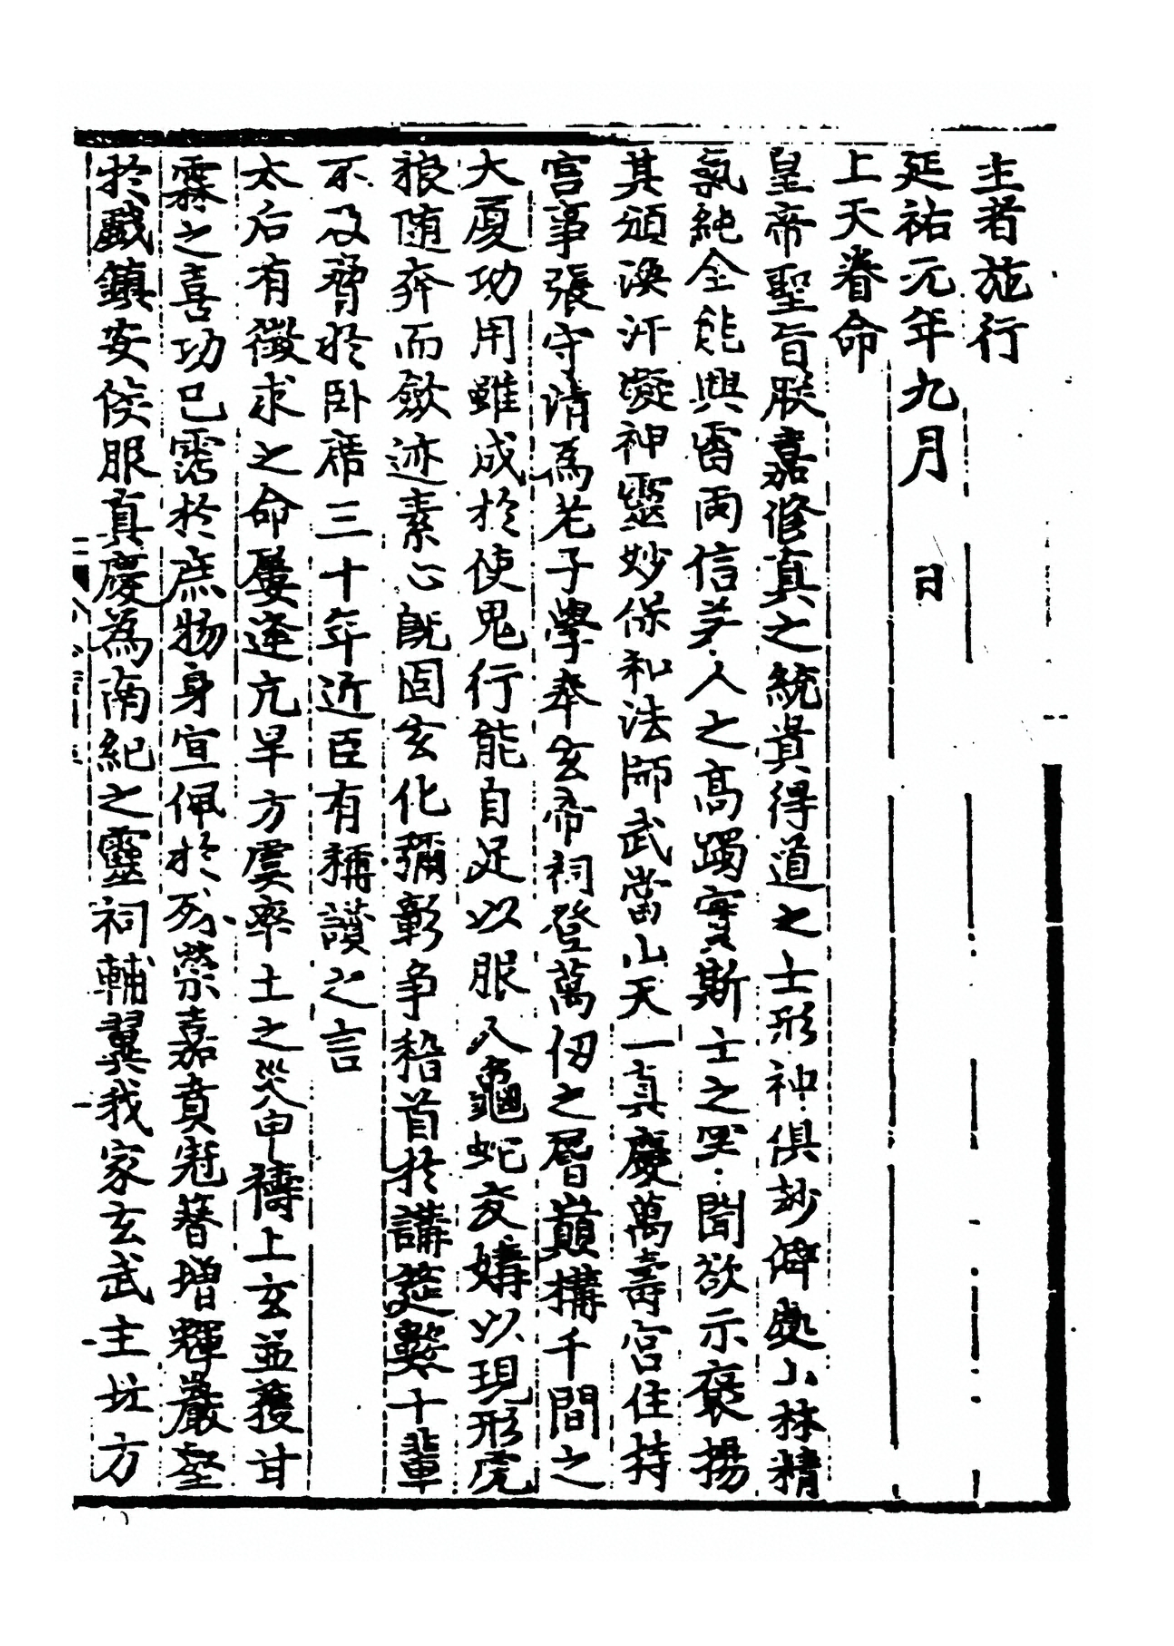 主者施行
延祐元年九月　日
上天眷命
皇帝聖旨朕嘉修真之統貴得道之士形神俱妙俾處山林精
氣純全能興雷雨信羙人之高躅實斯士之罕聞欲示褒揚
其頒渙汗凝神靈妙保和法師武當山天一真慶萬壽宮住持
宫事張守清為老子學奉玄帝祠登萬仞之層巔構千間之
大厦功用雖成於使鬼行能自足以服人龜蛇交媾以現形虎
狼随奔而斂迹素心既固玄化彌彰争稽首於講莚數十輩
不及脅於卧席三十年近臣有稱讃之言
太后有徵求之命屢逢亢旱方虞率土之災申禱上玄並獲甘
霖之喜功已霑於庶物身宣佩於殊榮嘉賁冠簪增輝巖壑
於戲鎮安侯服真慶為南紀之靈祠輔翼我家玄武主坎方